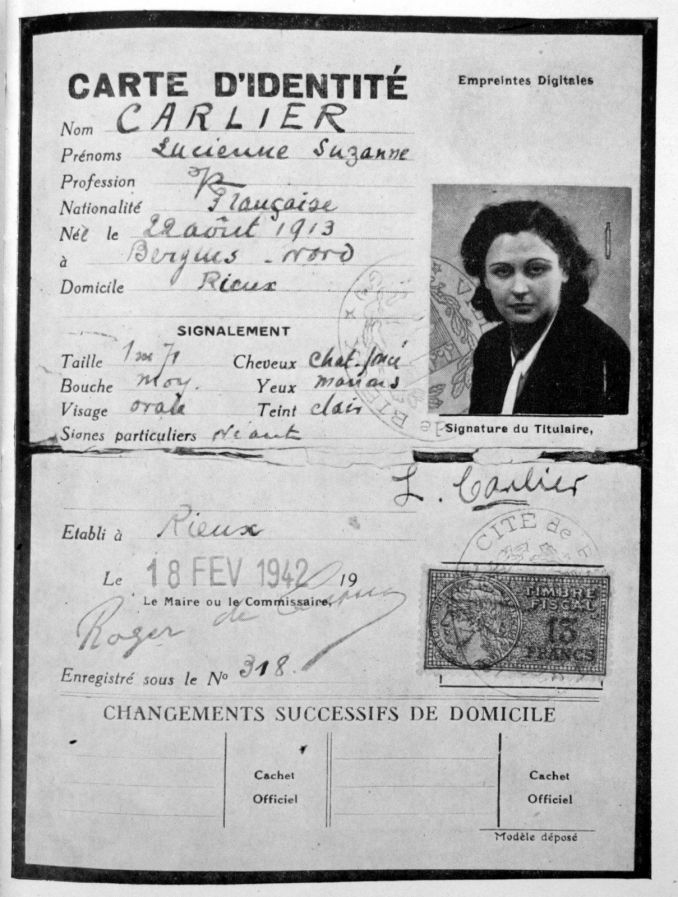 CARTE D'IDENTITÉ
Empreintes Digitales
Nom CARLIER
Prénoms Lucienne Suzanne
Profession
Nationalité Française
Né le 22 août 1913
à Bergues - Nord
Domicile Rieux
SIGNALEMENT
Taille 1m71 Cheveux chat. foncé
Bouche moy. Yeux marrons
Visage ovale Teint clair
Signes particuliers néant
Signature du Titulaire,
L. Carlier
Etabli à Rieux
CITÉ de
Le 18 FEV 1942 19
Le Maire ou le Commissaire,
Roger de
TIMBRE
FISCAL
13
FRANCS
Enregistré sous le No 318.
CHANGEMENTS SUCCESSIFS DE DOMICILE
Cachet Cachet
Officiel Officiel
Modèle déposé